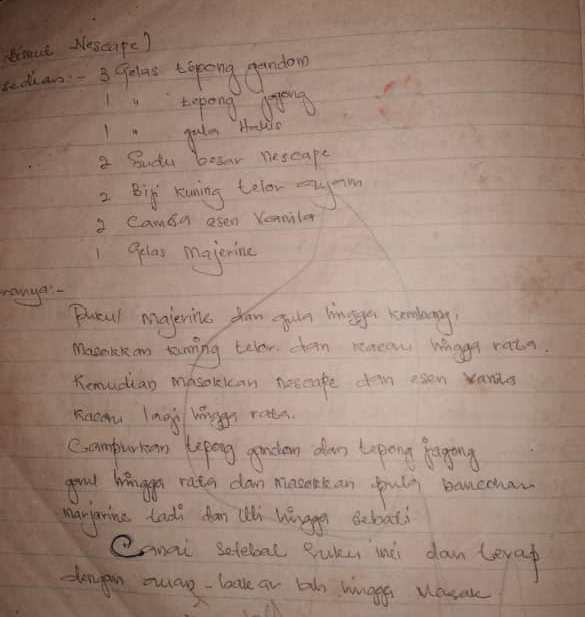 Biskut Nescape)
sedian:- 3 Gelas tepong gandom
1 " tepong jagong
1 " gula Halus
2 Sudu besar nescape
2 Biji kuning telor ayam
2 Camca esen Vanila
1 Gelas Majerine
ranya:-
Pukul majerine dan gula hingga kembang.
Masokkan kuning telor dan kacau hingga rata.
Kemudian masokkan nescape dan esen Vanila
Kacau lagi hingga rata.
Campurkan tepong gandom dan tepong jagong
gaul hingga rata dan masokkan pula bancohan
marjarine tadi dan Uli hingga sebati
Canai setebal suku inci dan terap
dengan acuan - bakar lah hingga Masak.